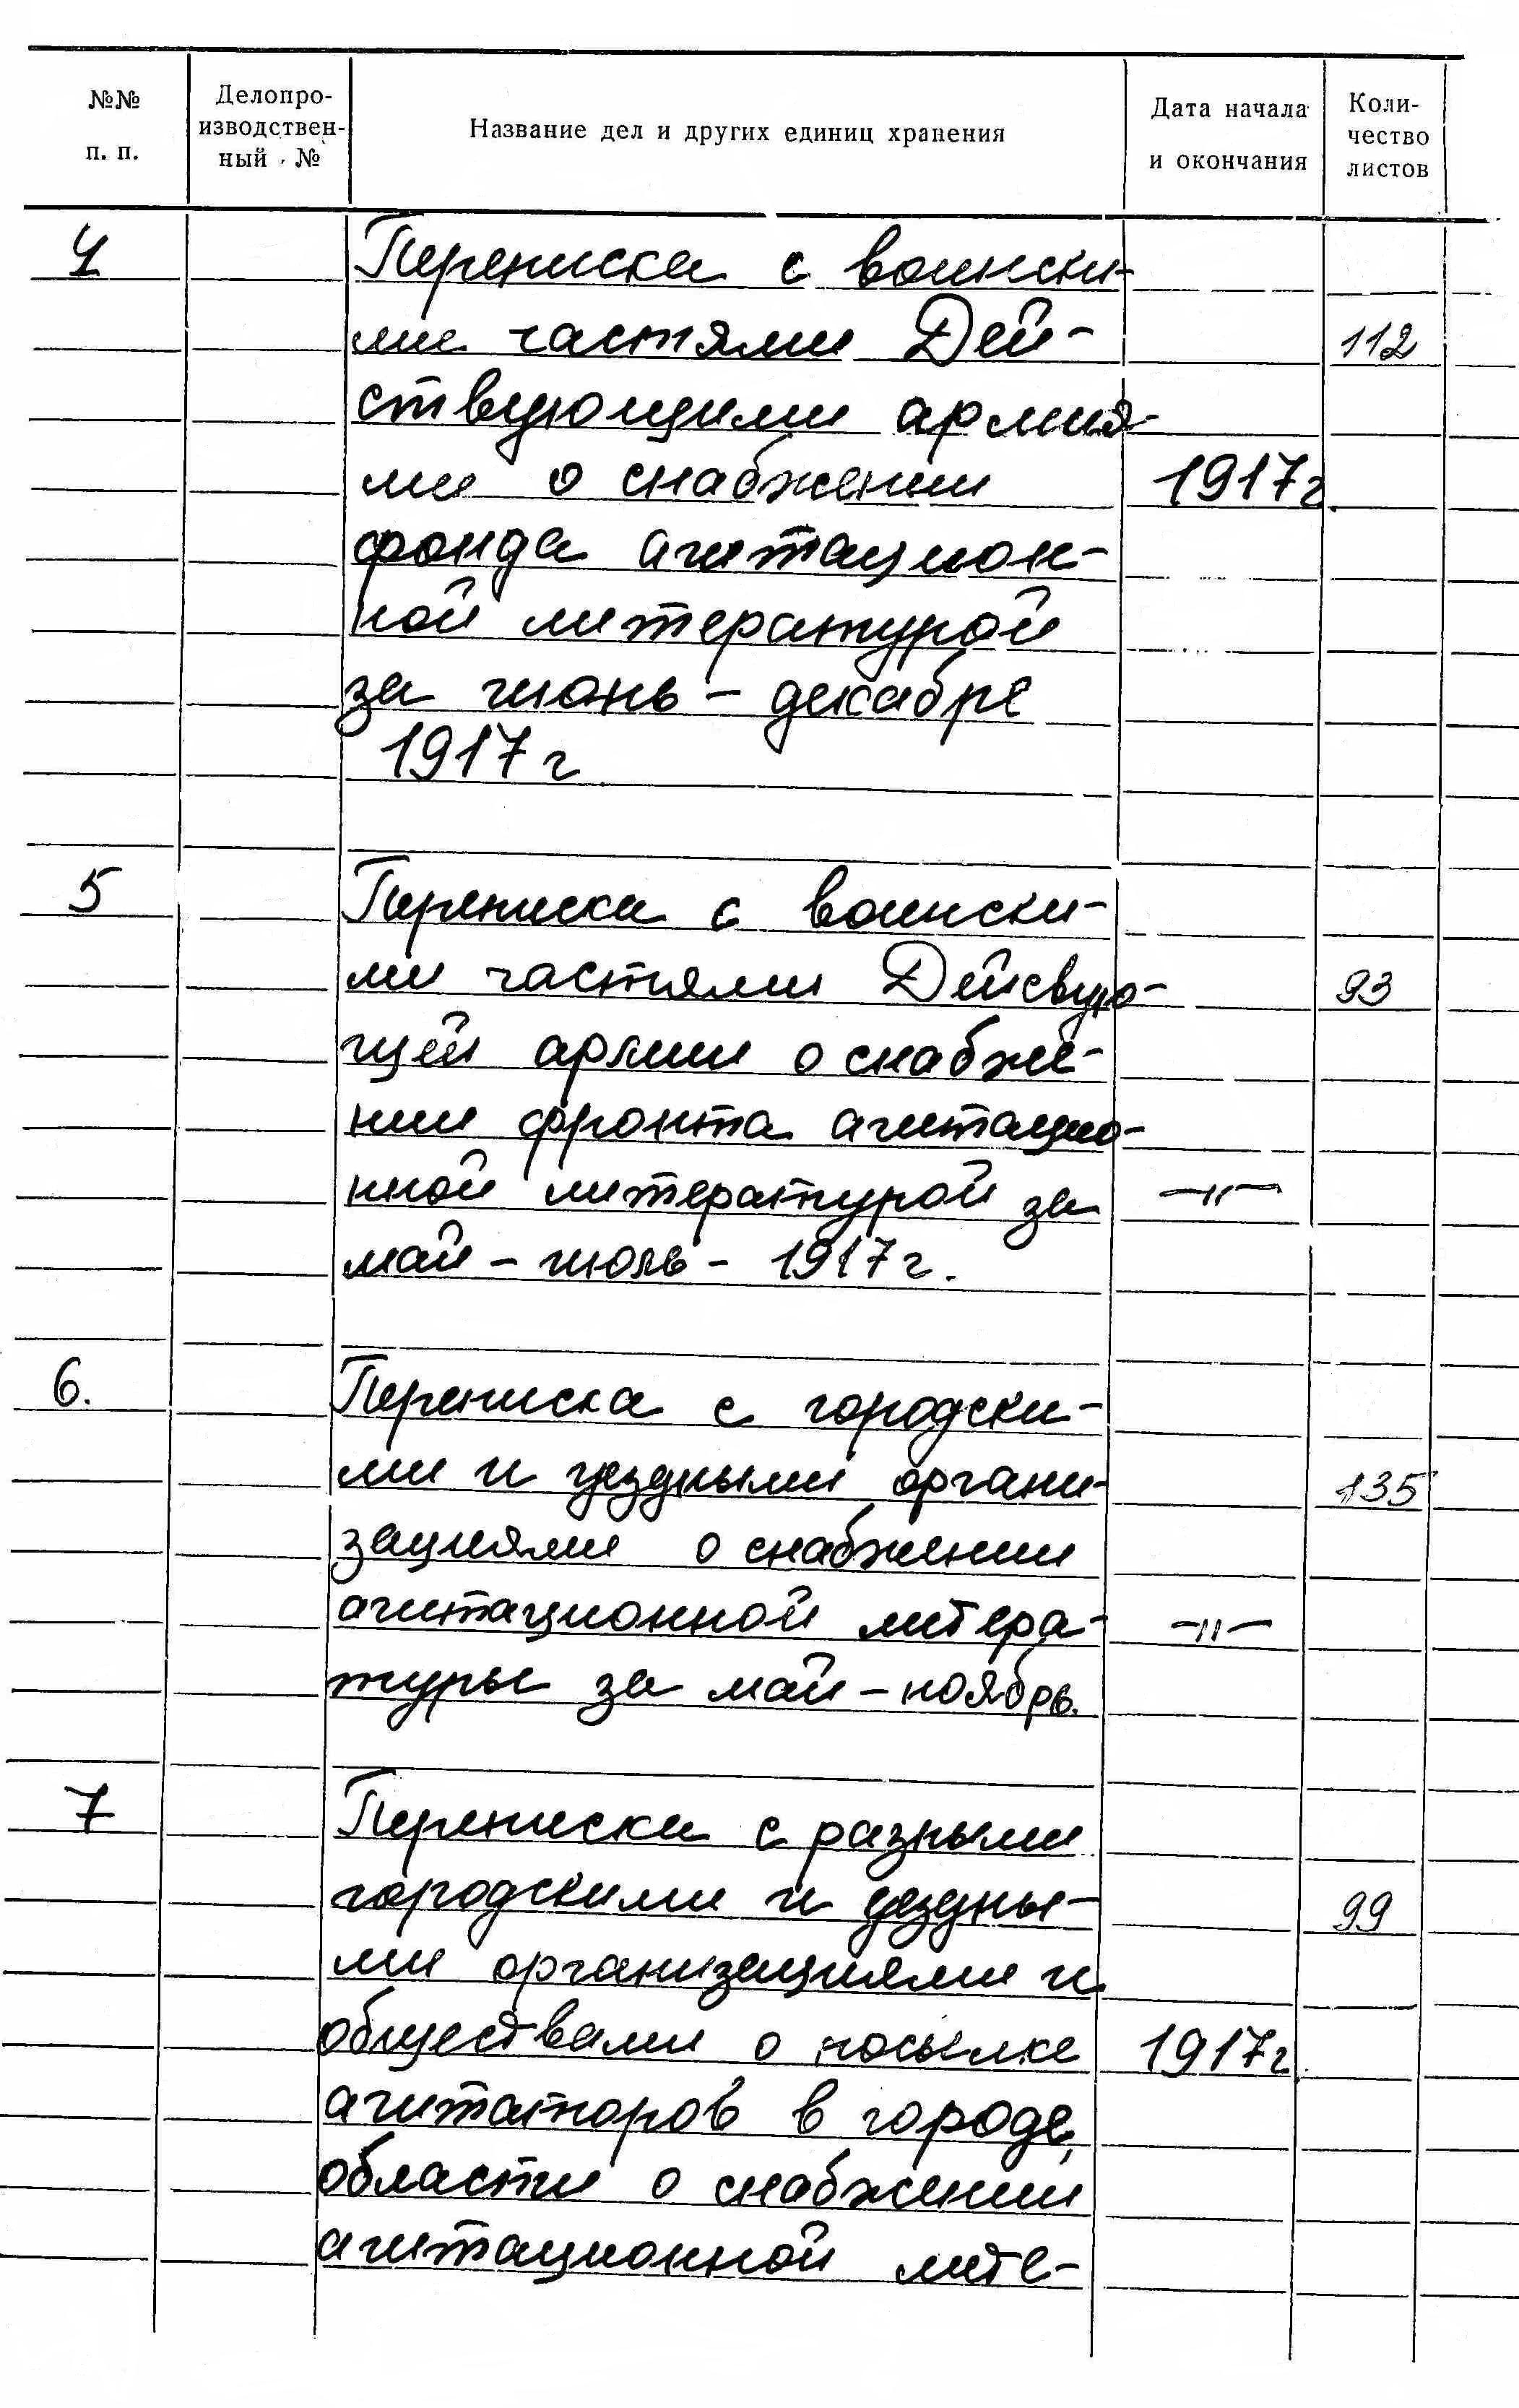 №№ п. п.
Делопро-
изводствен-
ный №
Название дел и других единиц хранения
Дата начала
и окончания
Коли-
чество
листов
4 Переписка с воински-
ми частями Дей- 112
ствующими армия-
ми о снабжении 1917г.
фонда агитацион-
ной литературой
за июнь - декабре
1917 г
5 Переписка с воински-
ми частями Дейсвую- 93
щей армии о снабже-
нии фронта агитацио-
нной литературой за -"-
май - июль - 1917 г.
6. Переписка с городски-
ми и уездными органи- 135
зациями о снабжении
агитационной литера- -"-
туры за май - ноябрь.
7 Переписка с разными
городскими и уездны- 99
ми организациями и
обществами о посылке 1917г.
агитаторов в города,
области о снабжении
агитационной лите-